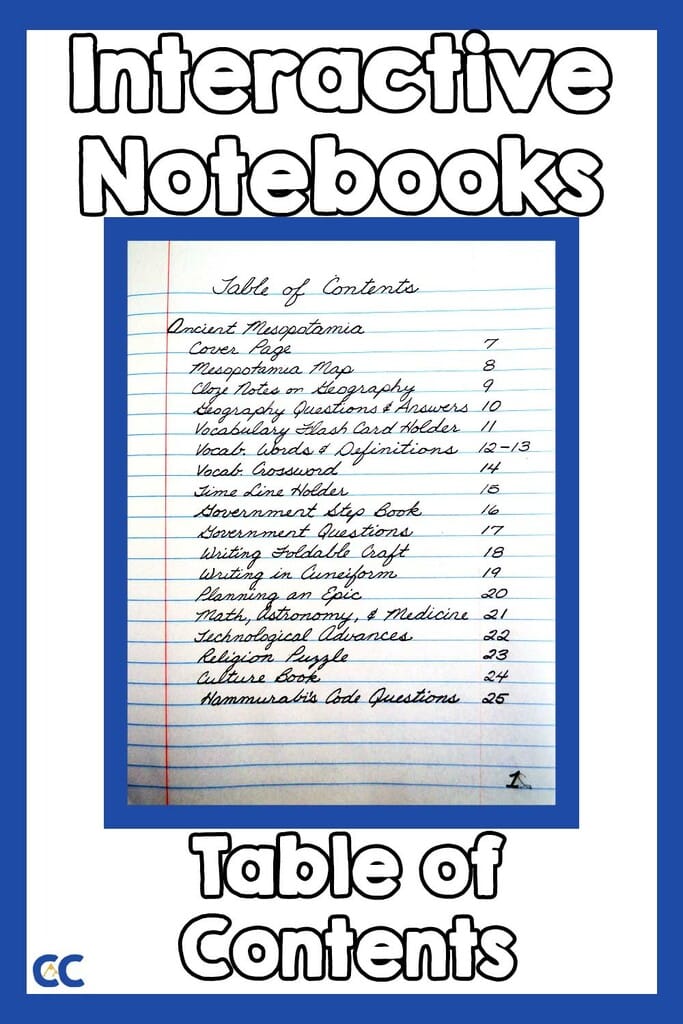 Interactive
Notebooks
Table of Contents
Ancient Mesopotamia
Cover Page 7
Mesopotamia Map 8
Cloze Notes on Geography 9
Geography Questions & Answers 10
Vocabulary Flash Card Holder 11
Vocab. Words & Definitions 12-13
Vocab. Crossword 14
Time Line Holder 15
Government Step Book 16
Government Questions 17
Writing Foldable Craft 18
Writing in Cuneiform 19
Planning an Epic 20
Math, Astronomy, & Medicine 21
Technological Advances 22
Religion Puzzle 23
Culture Book 24
Hammurabi's Code Questions 25
1
Table of
Contents
CC